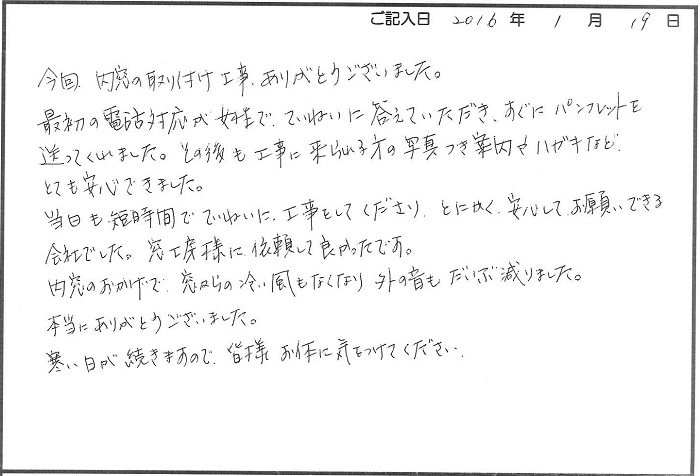 ご記入日 2016 年 1 月 19 日
今回、内窓の取り付け工事、ありがとうございました。
最初の電話対応が女性で、ていねいに答えていただき、すぐにパンフレットを
送ってくれました。その後も工事に来られる方の写真つき案内やハガキなど、
とても安心できました。
当日も短時間でていねいに、工事をしてくださり、とにかく、安心してお願いできる
会社でした。窓工房様に依頼して良かったです。
内窓のおかげで、窓からの冷い風もなくなり 外の音もだいぶ減りました。
本当にありがとうございました。
寒い日が続きますので、皆様 お体に気をつけてください。